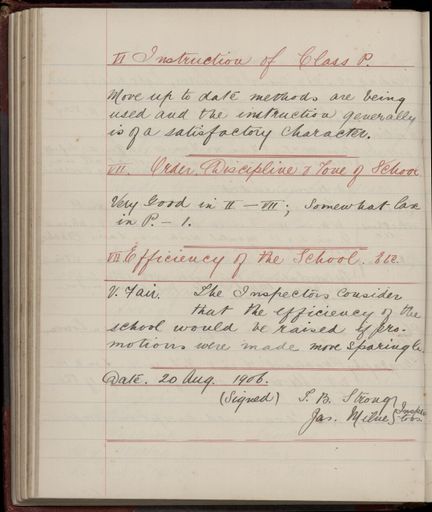 VI Instruction of Class P.
More up to date methods are being
used and the instruction generally
is of a satisfactory character.
VII. Order, Discipline & Tone of School
Very Good in II – VII; Somewhat lax
in P. – 1.
VIII Efficiency of the School. Etc.
V. Fair. The Inspectors consider
that the efficiency of the
school would be raised if pro-
motions were made more sparingly.
Date. 20 Aug. 1906.
(Signed) T. B. Strong
Jas. Milne } Inspec-
tors.